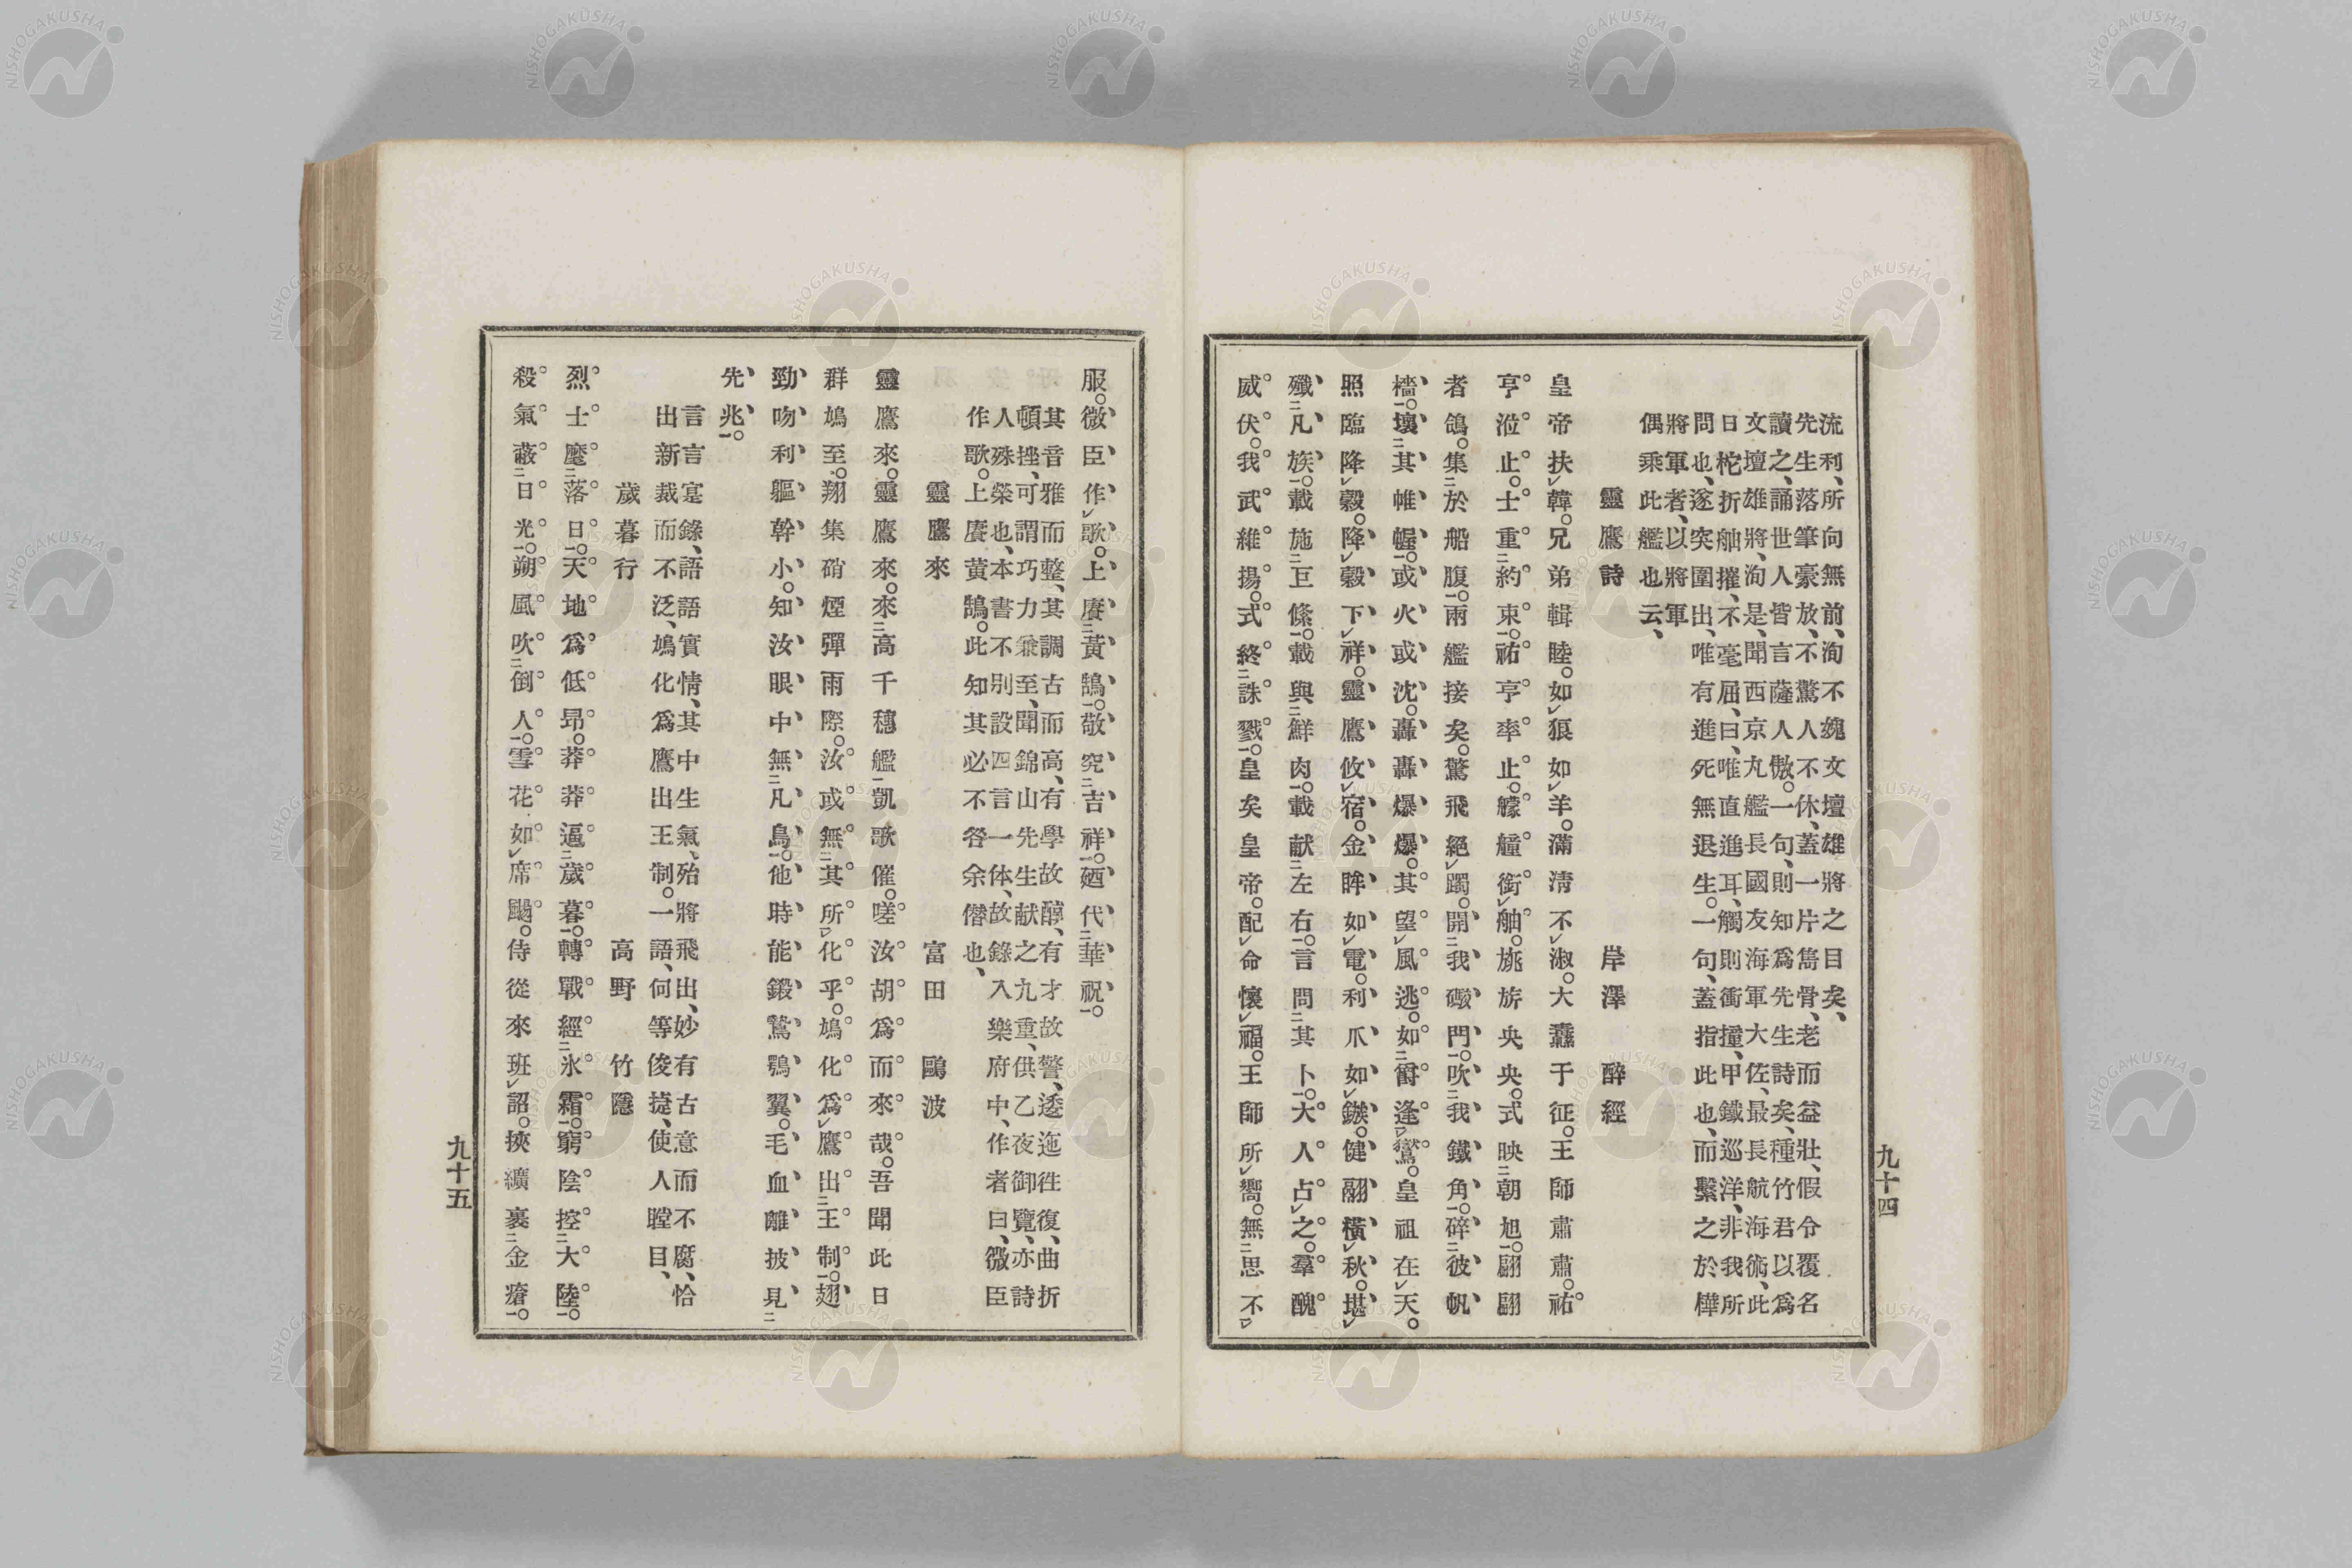 九十四
流利、所向無前、洵不媿文壇雄將之目矣、
先生落筆豪放、不驚人不休、蓋一片雋骨、老而益壯、假令覆名
讀之、誦世人皆言薩人傲。一句、則知爲先生詩矣、種竹君以爲
文壇雄將、洵是、聞西京丸艦長國友海軍大佐、最長航海術、此
日柁折舳摧、不毫屈、曰、唯直進耳、觸則衝撞、甲鐵巡洋、非我所
問也、遂突圍出、唯有進死無退生。一句、蓋指此也、而繫之於樺
將軍者、以將軍
偶乘此艦也云、
靈鷹詩 岸澤醉經
皇帝扶韓。兄弟輯睦。如狼如羊。滿淸不淑。大蠹于征。王師肅肅。祐
亨涖止。士重約束。祐亨率止。艨艟銜舳。旐旂央央。式映朝旭。翩翩
者鴿。集於船腹。兩艦接矣。驚飛絕躅。開我礮門。吹我鐵角。碎彼帆
檣。壞其帷幄。或火或沈。轟轟爆爆。其望風逃。如爵逢鸑。皇祖在天。
照臨降穀。降穀下祥。靈鷹攸宿。金眸如電。利爪如鏃。健翮橫秋。堪
殲凡族。載施巨絛。載與鮮肉。載献左右。言問其卜。大人占之。羣醜
威伏。我武維揚。式終誅戮。皇矣皇帝。配命懷福。王師所嚮。無思不
服。微臣作歌。上賡黃鵠。敬究吉祥。廼代華祝。
其音雅而整、其調古而高、有學故醇、有才故警、逶迤徃復、曲折
頓挫、可謂巧力兼至、聞錦山先生献之九重、供乙夜御覽、亦詩
人殊榮也、本書不別設四言一体、故錄入樂府中、作者曰、微臣
作歌。上賡黃鵠。此知其必不咎余僭也、
靈鷹來 富田鷗波
靈鷹來。靈鷹來。來高千穗艦凱歌催。嗟汝胡爲而來哉。吾聞此日
群鳩至。翔集硝煙彈雨際。汝或無其所化乎。鳩化爲鷹出王制。翅
勁吻利軀幹小。知汝眼中無凡鳥。他時能鍛鷲鶚翼。毛血離披見
先兆。
言言寔錄、語語實情、其中生氣、殆將飛出、妙有古意而不腐、恰
出新裁而不泛、鳩化爲鷹出王制。一語、何等俊捷、使人瞠目、
歲暮行 高野竹隱
烈士麾落日。天地爲低昂。莽莽逼歲暮。轉戰經氷霜。窮陰控大陸。
殺氣蔽日光。朔風吹倒人。雪花如席颺。侍從來班詔。挾纊裹金瘡。
九十五